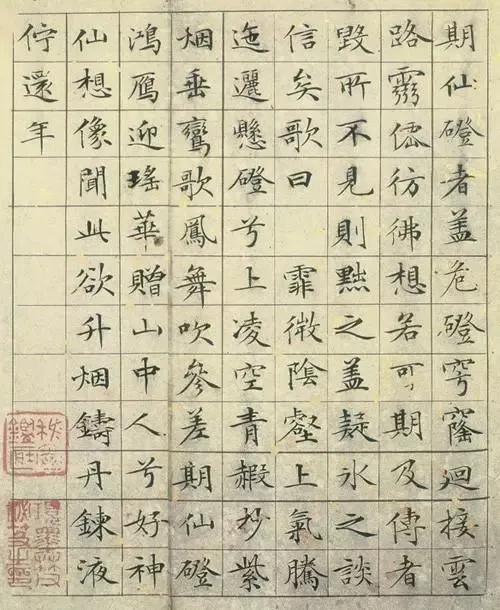 期仙磴者盖危磴穹窿迴接雲
路靈僊彷彿想若可期及傳者
毀所不見則黜之盖疑冰之談
信矣歌曰 霏微陰壑上氣騰
迤邐懸磴兮上凌空青赮杪紫
烟垂鸞歌鳳舞吹參差期仙磴
鴻鴈迎瑤華贈山中人兮好神
仙想像聞此欲升烟鑄丹鍊液
佇還年